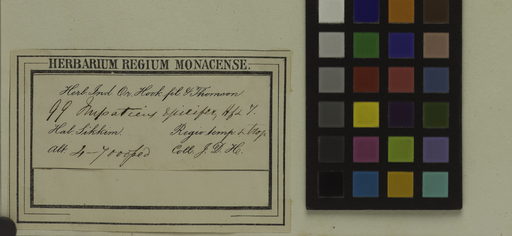 HERBARIUM REGIUM MONACENSE.
Herb. Ind. Or. Hook. fil. & Thomson
99 Impatiens spicifer, H.f. & T.
Hab. Sikkim. Regio temp. & trop.
Alt. 4–7000 ped Coll. J. D. H.